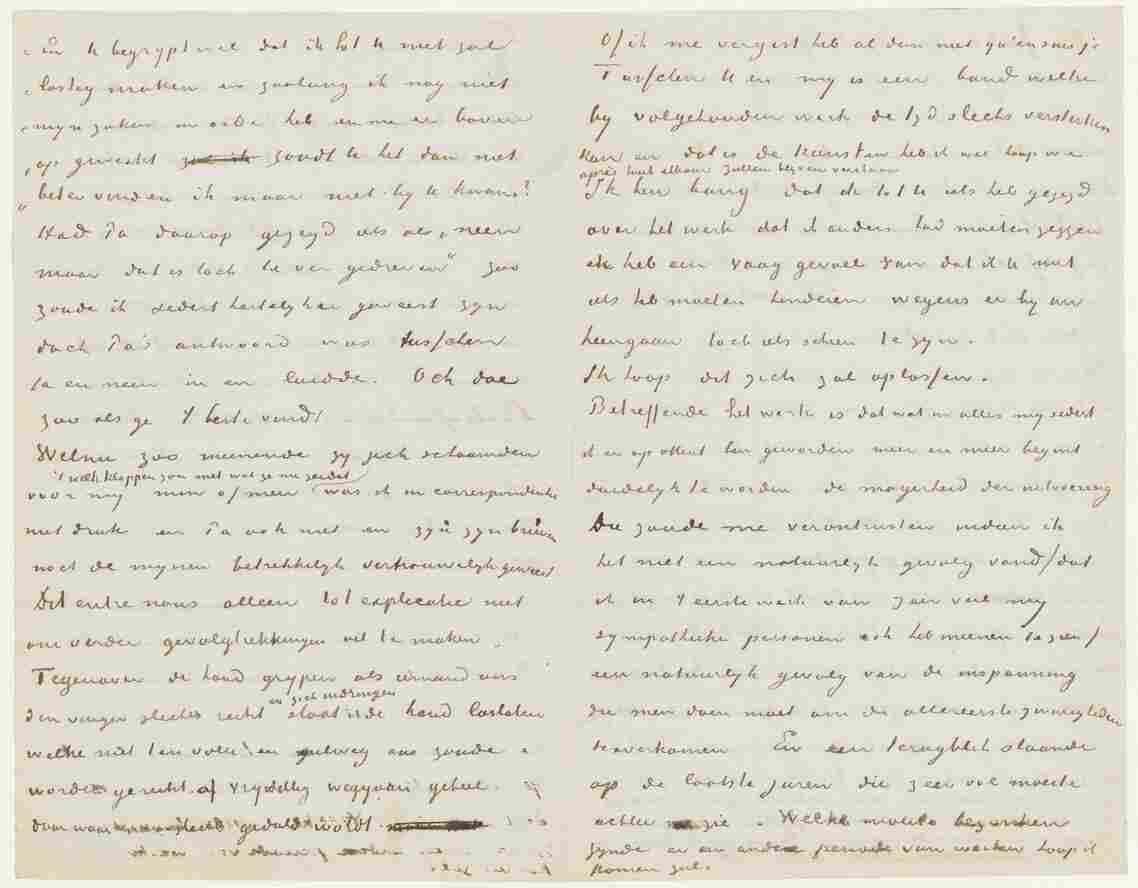 „en U begrypt wel dat ik het U niet zal
„lastig maken en zoolang ik nog niet
„myn zaken in orde heb en me er boven
„op gewerkt zoudt U het dan niet
„beter vinden ik maar niet by U kwam?
Had Pa daarop gezegd als ov. „neen
maar dat is toch te ver gedreven” zoo
zoude ik sedert hartelyker geweest zyn
doch Pa's antwoord was tusschen
ja en neen in en luidde. Och doe
zoo als ge 't beste vindt
Welnu zoo meenende zy zich schaamden
't well kloppen zou met wat ze nu zeiden
voor my min of meer was ik in correspondentie
niet druk en Pa ook niet en zyn zyn brieven
noch de mynen betrekkelyk vertrouwelyk geweest
Dit entre nous alleen tot explicatie niet
om verder gevolgtrekkingen uit te maken.
Tegenover de hand grypen als iemand ons
en zich indringen
den vinger slechts reikt staat de hand loslaten
welke niet ten volle en gulweg ons zoude
worden gereikt of vrywillig weggaan geheel
daar waar geduld wordt
Of ik me vergist heb al dan niet qu'en sais je
Tusschen U en my is een band welke
by volgehouden werk de tyd slechts versterken
kan en dat is de kunst en heb ik wel hoop we
après tout elkaar zullen blyven verstaan
Ik ben bang dat ik tot U iets heb gezegd
over het werk dat ik anders had moeten zeggen
ek heb een vaag gevoel van dat ik U met
iets heb moeten hinderen wegens er by uw
heengaan toch iets scheen te zyn.
Ik hoop dit zich zal oplossen.
Betreffende het werk is dat wat in alles my sedert
ik er op attent ben geworden meer en meer begint
duidelyk te worden de magerheid der uitvoering
Die zoude me verontrusten indien ik
het niet een natuurlyk gevolg vond/dat
ik in 't eerste werk van zeer veel my
sympathieke personen ook heb meenen te zien/
een natuurlyk gevolg van de inspanning
die men doen moet om de allereerste zwarigheden
te overkomen En een terugblik slaande
op de laatste jaren die zeer vol moeite
achter me zie. Welke moeite bezonken
zynde er een andere periode van werken hoop ik
komen zal.